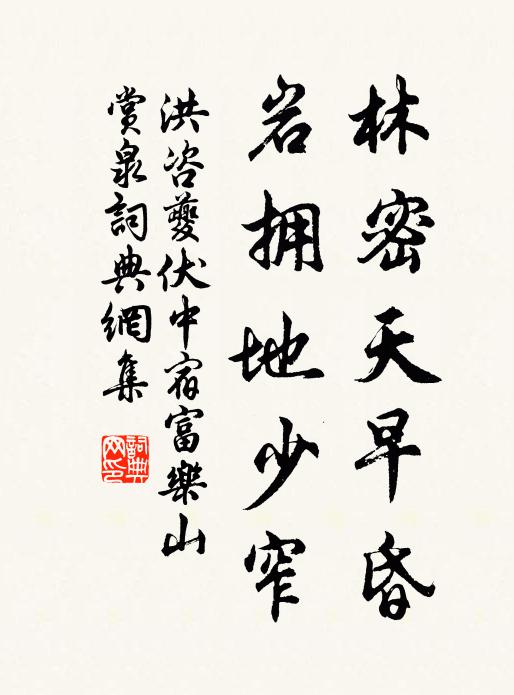 林密天早昏
岩拥地少窄
洪咨夔伏中宿富樂山
赏泉詞典網集
詞典网印